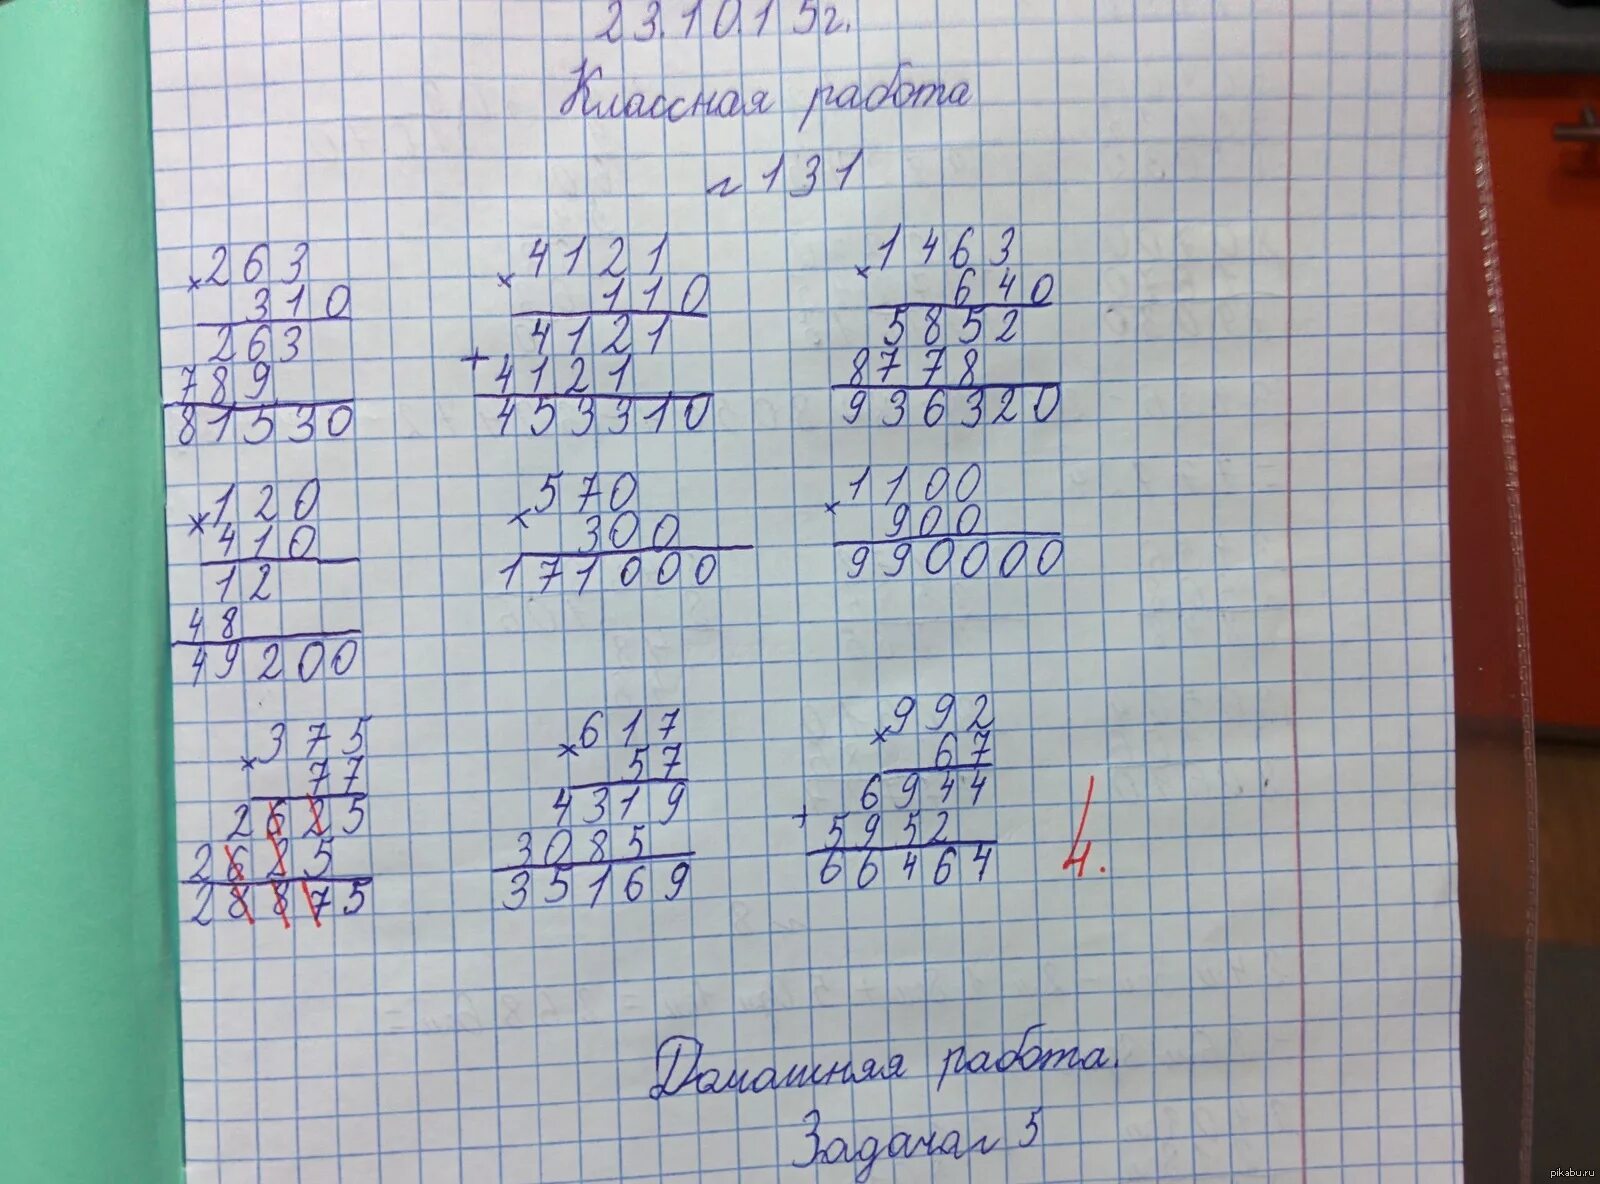 23.10.15г.
Классная работа
№131
×263
310
263
789
81530
×4121
110
4121
+4121
453310
×1463
640
5852
8778
936320
×120
410
12
48
49200
×570
300
171000
×1100
900
990000
×375
77
2625
2625
28875
×617
57
4319
3085
35169
×992
67
6944
+5952
66464
4.
Домашняя работа.
Задача № 5
pikabu.ru